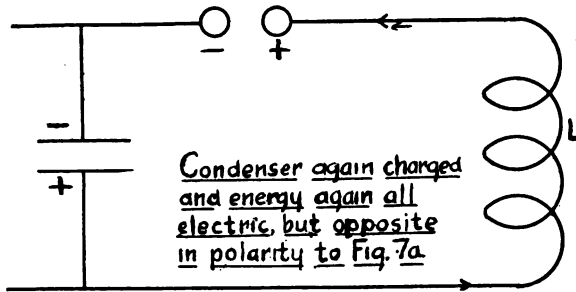 - +
L
-
+
Condenser again charged
and energy again all
electric, but opposite
in polarity to Fig. 7a